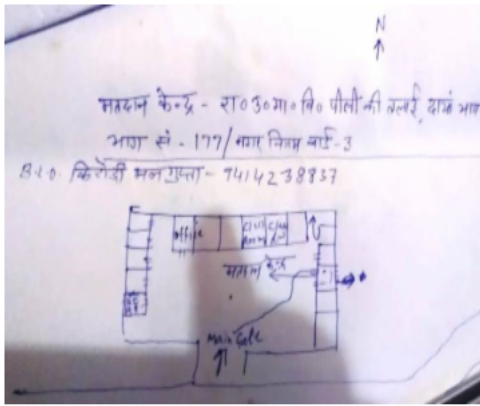 N
मतदान केन्द्र - रा०उ०मा०वि० पीली की तलाई, दायां भाग
भाग सं. - 177/ नगर निगम वार्ड-3
B.L.O. किरोडी मल गुप्ता - 9414238837
office
Class Room
मतदान केन्द्र
Main Gate